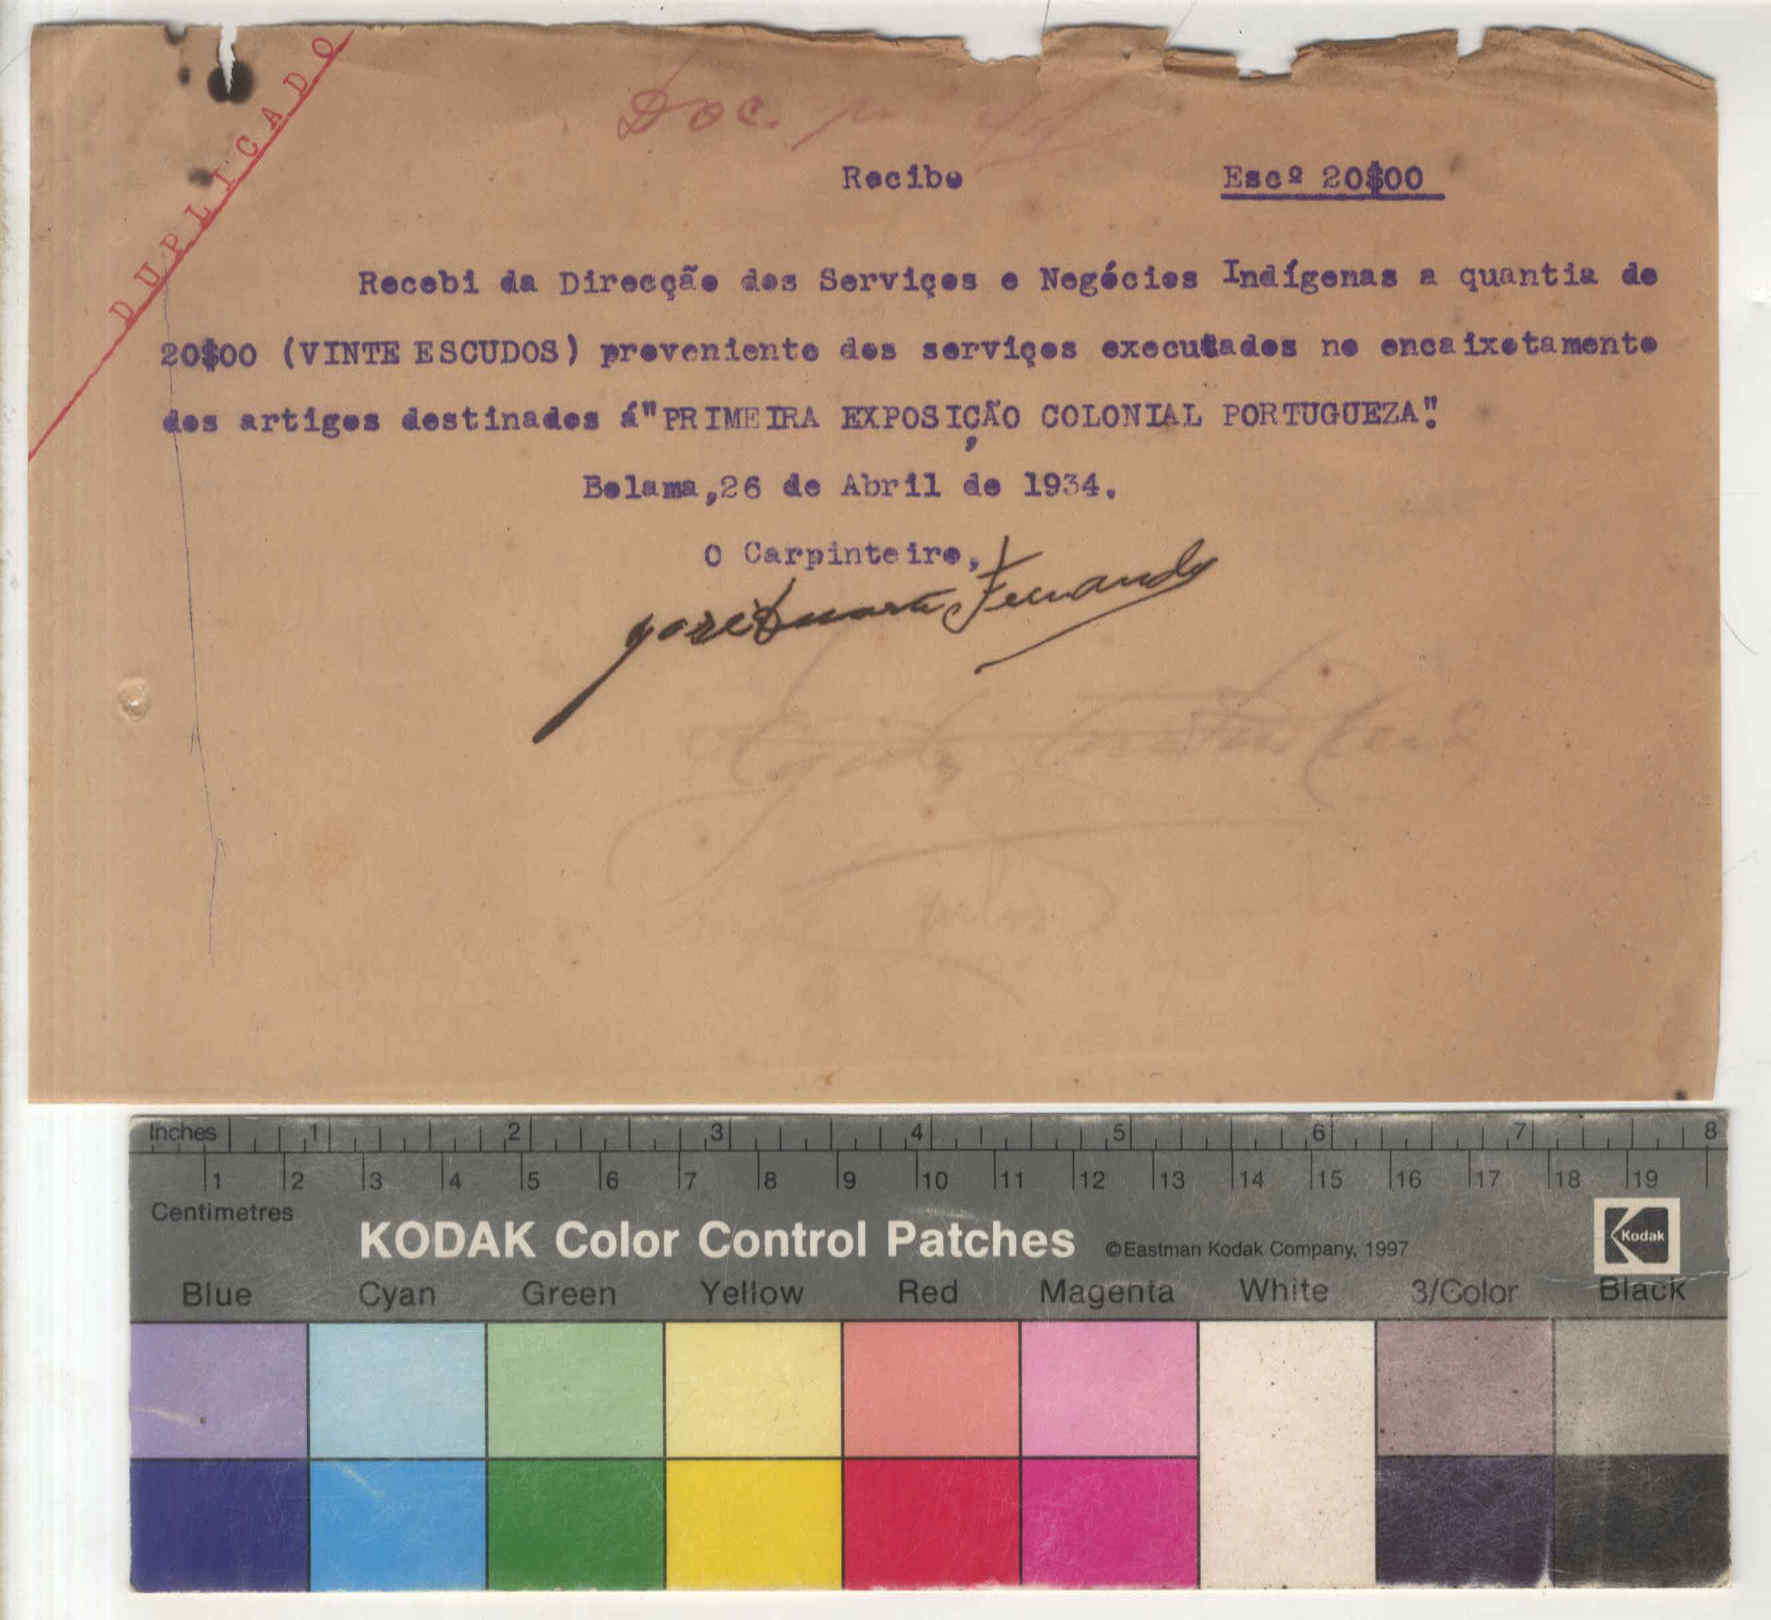 DUPLICADO
Doc.
Recibo Escº 20$00
Recebi da Direcção dos Serviços e Negócios Indígenas a quantia de
20$00 (VINTE ESCUDOS) proveniente dos serviços executados no encaixotamento
dos artigos destinados á "PRIMEIRA EXPOSIÇÃO COLONIAL PORTUGUEZA".
Bolama,26 de Abril de 1934.
O Carpinteiro,
José Duarte Fernandes
Inches 1 2 3 4 5 6 7 8
1 2 3 4 5 6 7 8 9 10 11 12 13 14 15 16 17 18 19
Centimetres
KODAK Color Control Patches ©Eastman Kodak Company, 1997 Kodak
Blue Cyan Green Yellow Red Magenta White 3/Color Black